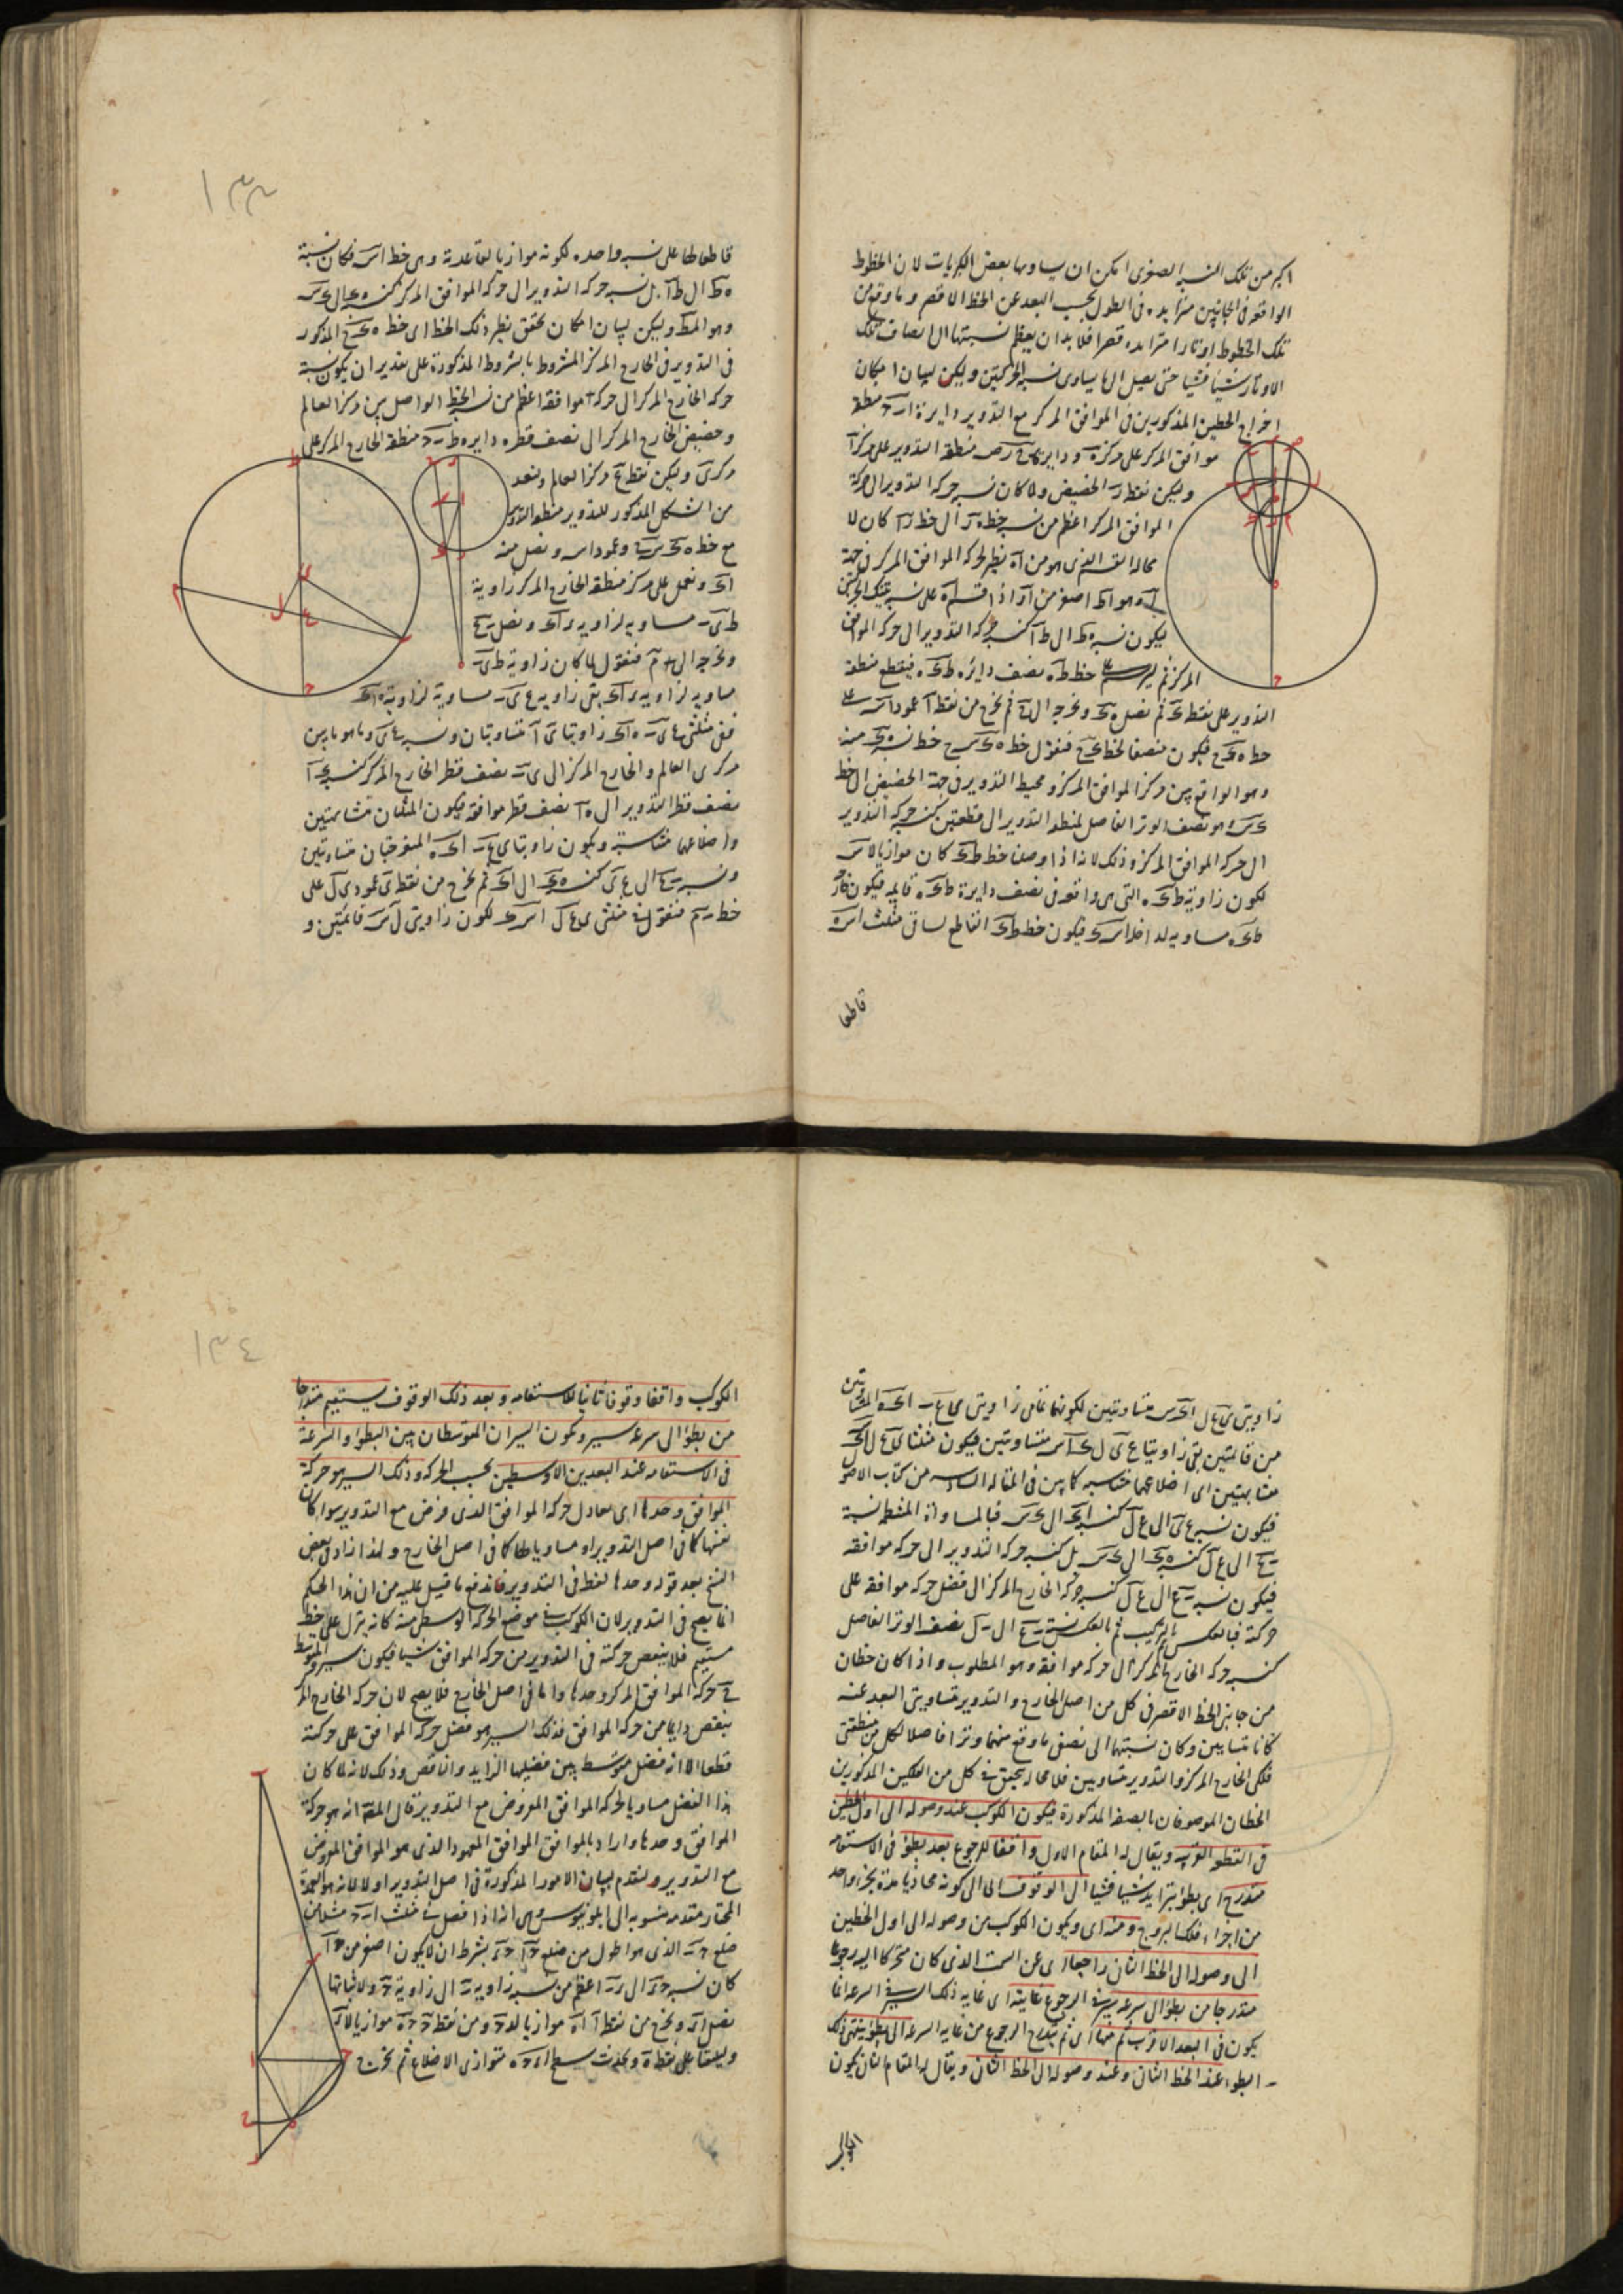 اكبر من تلك النسب الصغرى امكن ان يساويها بعض الكبريات لان الخطوط
الواقعه فى الجانبين متزايده فى الطول بحسب البعد عن الخط الاقصر وما وقع من
تلك الخطوط اوتارا متزايده قصرا فلا بد ان يعظم نسبتها الى انصاف تلك
الاوتار شيئا فشيئا حتى يصل الى ما يساوى نسبه الحركتين وليكن لبيان امكان
اخراج الخطين المذكورين فى الموافق المركز مع التدوير دايرة ا ب ح منطقة
موافق المركز على مركز ه ودايرة منطقه التدوير على مركز ا
وليكن نقطة ر الحضيض ولما كان نسبه حركه التدوير الى حركة
الموافق المركز اعظم من نسبه خط ه ر الى خط ر ا كان لا
محاله القسم الذى هو من ا ه نظير لحركه الموافق المركز فى جهة
يكون نسبه ه ط الى ط ا كنسبه حركه التدوير الى حركه الموافق
المركز ثم ليرسم على خط ط ه نصف دائره ط ى ه فيقطع منطقة
التدوير على نقطة ى ثم نصل ه ى ونخرجه الى ثم نخرج من نقطة ا عمود ا س على
خط ه ى ع فيكون منصفا لخط ى ع فنقول خط نسبه ه ى منه
وهو الواقع بين مركز الموافق المركز ومحيط التدوير فى جهة الحضيض الى خط
ى س وهو نصف الوتر الفاصل لمنطقه التدوير الى قطعتين كنسبه حركه التدوير
الى حركه الموافق المركز وذلك لانه اذا وصلنا خط ط ى كان موازيا لا س
لكون زاوية ط ى ه التى هى واقعه فى نصف دايرة ط ى ه قايمه فيكون خارجة
ط ى ه مساويه لداخله ا س ى فيكون خط ط ى القاطع لساقى مثلث ا س ه
قاطعا
١٣٣
قاطعا لها على نسبه واحده لكونه موازيا لقاعدته وهى خط ا س فكان نسبة
ه ط الى ط ا بل نسبه حركه التدوير الى حركه الموافق المركز كنسبه ه ى الى ى س
وهو المط وليكن لبيان امكان تحقق نظير ذلك الخط اى خط المذكور
فى التدوير فى الخارج المركز المشروط بالشروط المذكورة على تقدير ان يكون نسبة
حركه الخارج المركز الى حركه موافقه اعظم من نسبه الخط الواصل بين مركز العالم
وحضيض الخارج المركز الى نصف قطره دايره ط ب ح منطقة الخارج المركز على
مركز ى وليكن نقطة ع مركز العالم ونعيد
من الشكل المذكور للتدوير منطقة التدوير
مع خط وعمود ا س ونصل منه
ا ى ونعمل على مركز منطقة الخارج المركز زاوية
ط ى ب مساويه لزاويه ر ا ى ونصل ب ع
ونخرجه الى م فنقول لما كان زاوية ط ى ب
مساويه لزاويه ر ا ى بقى زاويه ع ى ب مساوية لزاوية ه ا ى
ففى مثلثى زاويتا ى ا متساويتان ونسبه ع ى وما هو ما بين
مركزى العالم والخارج المركز الى ى ب نصف قطر الخارج المركز كنسبه ى ا
نصف قطر التدوير الى ه ا نصف قطر موافقه فيكون المثلثان متشابهتين
واضلاعهما متناسبة ويكون زاويتا ى ع ب ا ى ه المنفرجتان متساويتين
ونسبه ب ع الى ع ى كنسبه ه ى الى ا ى ثم نخرج من نقطة ى عمود ى ل على
خط ب م فنقول فى مثلثى ى ع ل ا س ى لكون زاويتى ل س قائمتين و
زاويتى ى ع ل ا ى س متساويتين لكونهما تمامى زاويتى ى ع ب ا ى ه المتساويتين
من قائمتين بقى زاويتا ع ى ل ى ا س متساويتين فيكون مثلثا
متشابهتين اى اضلاعهما متناسبه كما بين فى المقاله السادسه من كتاب الاصول
فيكون نسبه ع ى الى ع ل كنسبه ا ى الى ى س فبالمساواة المنتظمة نسبة
ب ع الى ع ل كنسبه ه ى الى ى س بل كنسبه حركه التدوير الى حركه موافقه
فيكون نسبه ب ع الى ع ل كنسبه حركه الخارج المركز الى فضل حركه موافقه على
حركته فبالعكس ثم بالتركيب ثم بالعكس نسبة ب ع الى ب ل نصف الوتر الفاصل
كنسبه حركه الخارج المركز الى حركه موافقه وهو المطلوب واذا كان خطان
من جانبى الخط الاقصر فى كل من اصل الخارج والتدوير متساويتى البعد عنه
كانا متساويين وكان نسبتهما الى نصفى ما وقع منهما وترا فاصلا لكل من منطقتى
فلكى الخارج المركز والتدوير متساويين فلا محاله يتحقق فى كل من الفلكين المذكورين
الخطان الموصوفان بالصفه المذكورة فيكون الكوكب عند وصوله الى اول الخطين
فى النطق القريبه ويقال له المقام الاول واقفا للرجوع بعد بطؤ فى الاستقامه
متدرج اى بطؤ يتزايد شيئا فشيئا الى الوقوف اى الى كونه محاذيا مدة لجزء واحد
من اجزاء فلك البروج ومنه اى ويكون الكوكب من وصوله الى اول الخطين
الى وصوله الى الخط الثانى راجعا اى عن السمت الذى كان متحركا اليه رجوعا
متدرجا من بطؤ الى سرعه سير فى الرجوع غايته اى غايه ذلك السير السرعه انما
يكون فى البعد الاقرب ثم منها اى ثم يتدرج الرجوع من غايه السرعه الى بطؤ ينتهى ذلك
البطوء عند الخط الثانى وعند وصوله الى الخط الثانى ويقال له المقام الثانى يكون
الكوكب
١٣٤
الكوكب واقفا وقوفا ثانيا للاستقامه وبعد ذلك الوقوف يستقيم متدرجا
من بطؤ الى سرعه سير ويكون السيران المتوسطان بين البطؤ والسرعة
فى الاستقامه عند البعدين الاوسطين بحسب الحركه وذلك السير هو حركة
الموافق وحدها اى يعادل حركه الموافق الذى فرض مع التدوير سواء كان
عينها كما فى اصل التدوير او مساويا لها كما فى اصل الخارج ولهذا زاد فى بعض
النسخ بعد قوله وحدها لفظ فى التدوير فاندفع ما قيل عليه من ان هذا الحكم
انما يصح فى التدوير لان الكوكب فى موضع الحركه الوسطى منه كانه ينزل على خط
مستقيم فلا ينقص حركته فى التدوير من حركه الموافق شيئا فيكون سيره المتوسط
حركه الموافق المركز وحدها واما فى اصل الخارج فلا يصح لان حركه الخارج المركز
ينقص دايما من حركه الموافق فذلك السير هو فضل حركه الموافق على حركته
قطعا الا انه فضل متوسط بين فضليها الزايد والناقص وذلك لانه لما كان
هذا الفضل مساويا لحركه الموافق المفروض مع التدوير قال المصنف انه هو حركة
الموافق وحدها واراد بالموافق الموافق المعهود الذى هو الموافق المفروض
مع التدوير ولنقدم لبيان الامور المذكورة فى اصل التدوير اولا لانه هو العمدة
المختار مقدمه منسوبه الى ابلونيوس وهى انه اذا فصل فى مثلث ا ب ح مثلا من
ضلع ح ب الذى هو اطول من ضلع ح ا ح ر بشرط ان لا يكون اصغر من ح ا
كان نسبه ح ر الى ر ب اعظم من نسبه زاوية ب الى زاوية ح ولاثباتها
نصل ا ر ونخرج من نقطة ا ا ه موازيا لـ ر ح ومن نقطة ح ح ه موازيا لا ر
وليلتقيا على نقطة ه ويحدث سطح ا ر ح ه متوازى الاضلاع ثم نخرج